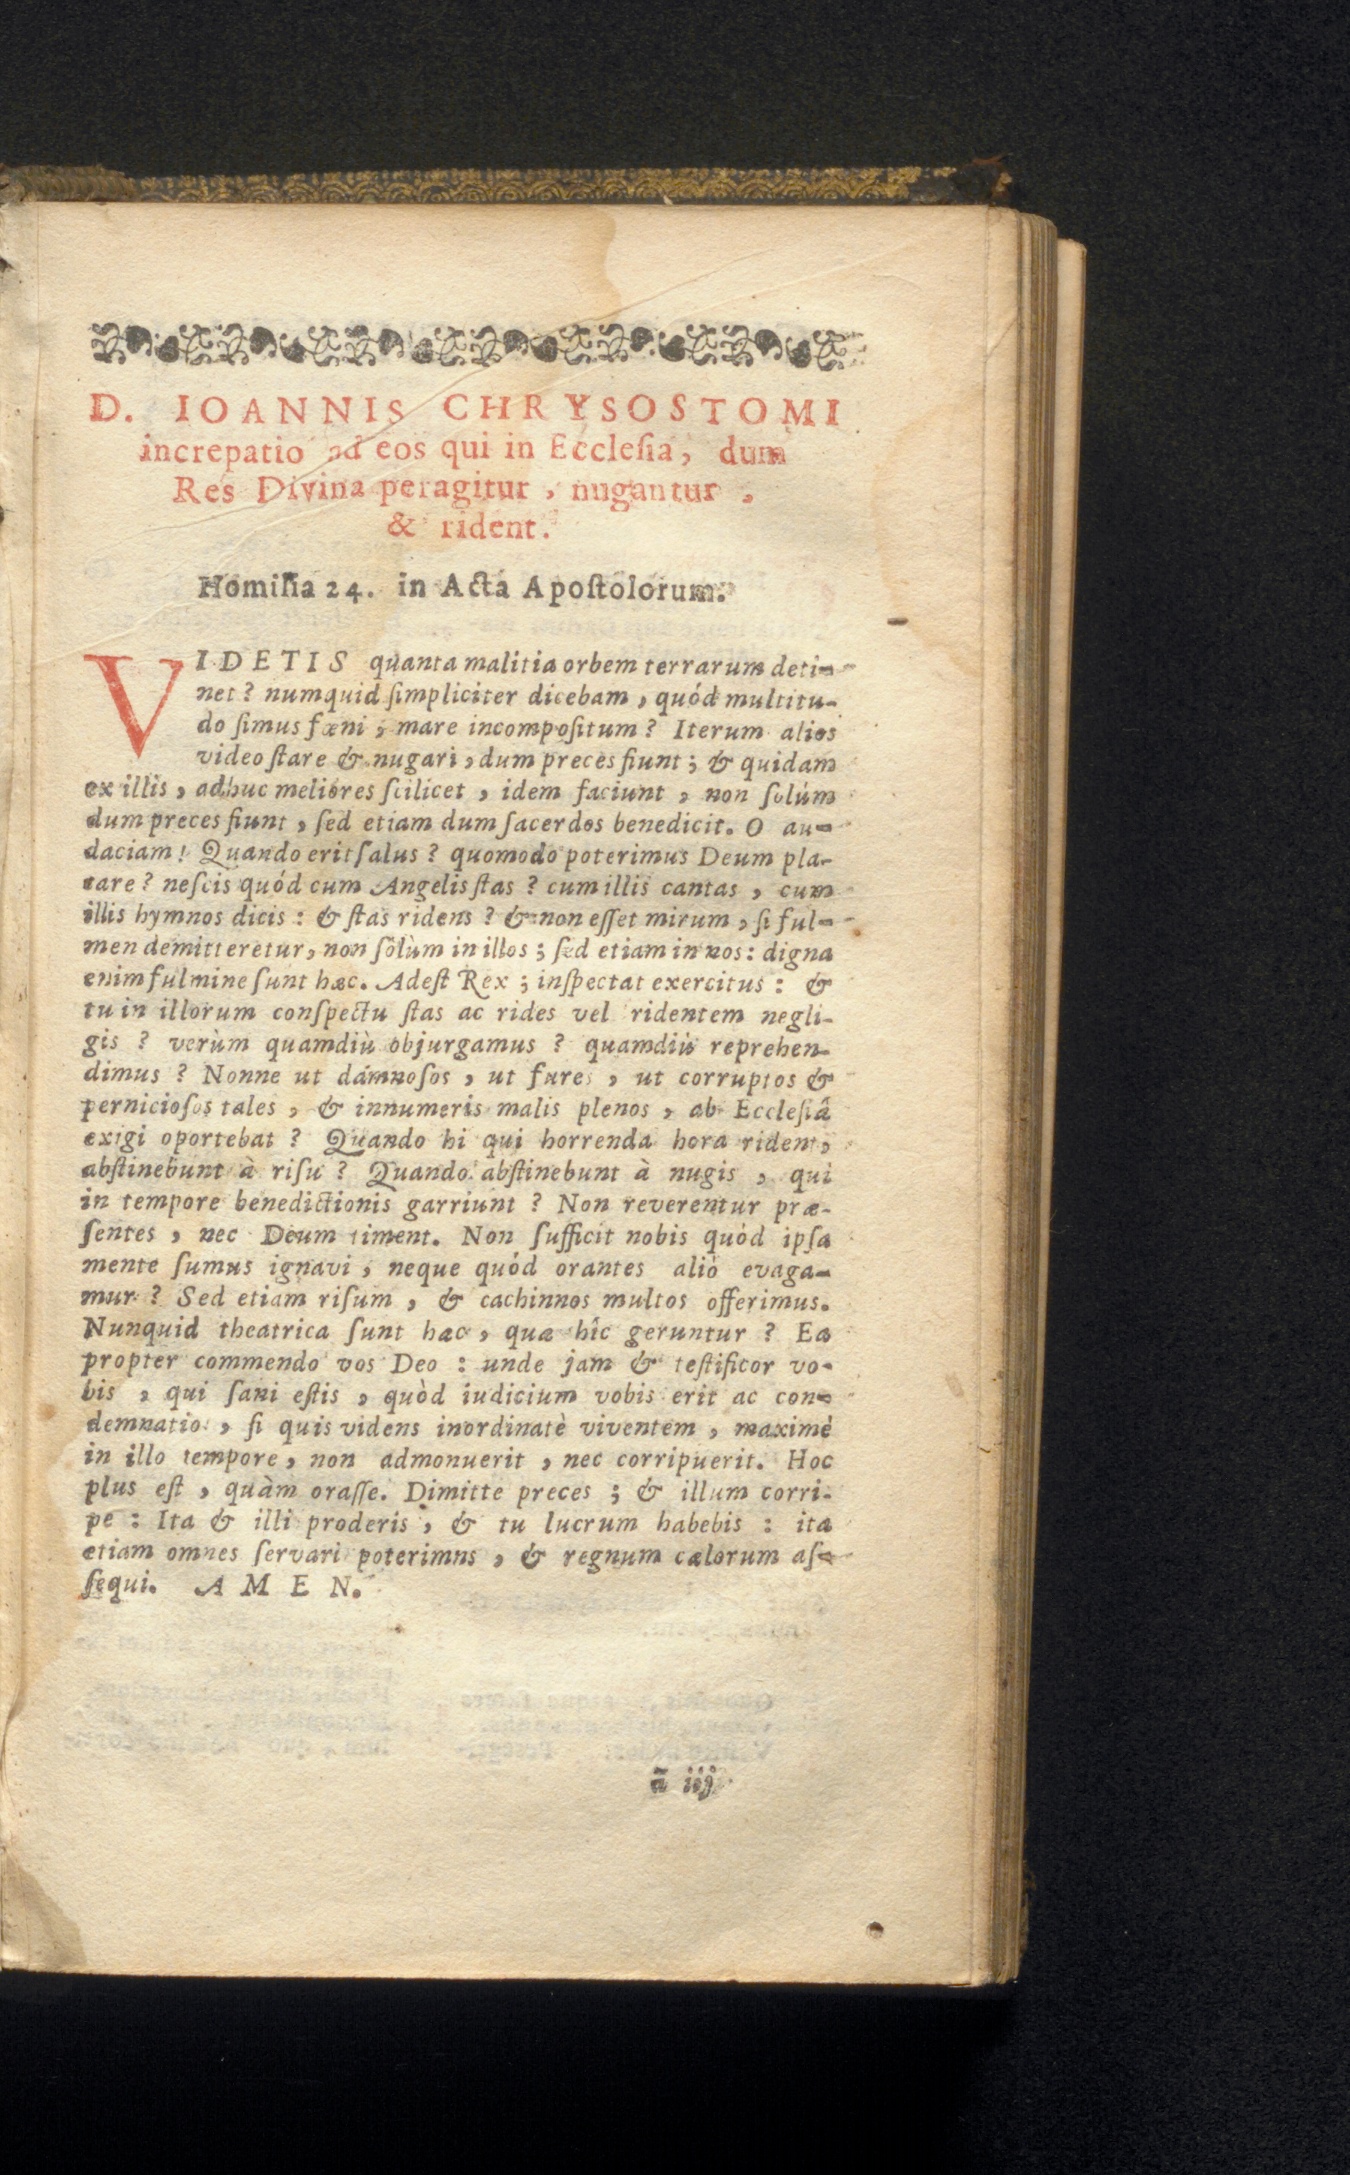 D. IOANNIS CHRYSOSTOMI
increpatio ad eos qui in Eccleſia, dum
Res Divina peragitur, nugantur,
& rident.
Homilia 24. in Acta Apoſtolorum.
VIDETIS quanta malitia orbem terrarum deti-
net? numquid ſimpliciter dicebam, quód multitu-
do ſimus fœni, mare incompoſitum? Iterum alios
video ſtare & nugari, dum preces fiunt; & quidam
ex illis, adhuc melióres ſcilicet, idem faciunt, non ſolúm
dum preces fiunt, ſed etiam dum ſacerdos benedicit. O au-
daciam! Quando erit ſalus? quomodo poterimus Deum pla-
care? neſcis quód cum Angelis ſtas? cum illis cantas, cum
illis hymnos dicis: & ſtas ridens? & non eſſet mirum, ſi ful-
men demitteretur, non ſolùm in illos; ſed etiam in nos: digna
enim fulmine ſunt hæc. Adeſt Rex; inſpectat exercitus: &
tu in illorum conſpectu ſtas ac rides vel ridentem negli-
gis? verùm quamdiù objurgamus? quamdiù reprehen-
dimus? Nonne ut damnoſos, ut fures, ut corruptos &
pernicioſos tales, & innumeris malis plenos, ab Eccleſiâ
exigi oportebat? Quando hi qui horrenda hora rident,
abſtinebunt à riſu? Quando abſtinebunt à nugis, qui
in tempore benedictionis garriunt? Non reverentur præ-
ſentes, nec Deum timent. Non ſufficit nobis quód ipſa
mente ſumus ignavi, neque quód orantes aliò evaga-
mur? Sed etiam riſum, & cachinnos multos offerimus.
Nunquid theatrica ſunt hæc, quæ hîc geruntur? Ea
propter commendo vos Deo: unde jam & teſtificor vo-
bis, qui ſani eſtis, quòd iudicium vobis erit ac con-
demnatio, ſi quis videns inordinatè viventem, maximé
in illo tempore, non admonuerit, nec corripuerit. Hoc
plus eſt, quàm oraſſe. Dimitte preces; & illum corri-
pe: Ita & illi proderis, & tu lucrum habebis: ita
etiam omnes ſervari poterimns, & regnum cælorum aſ-
ſequi. AMEN.
ã iij